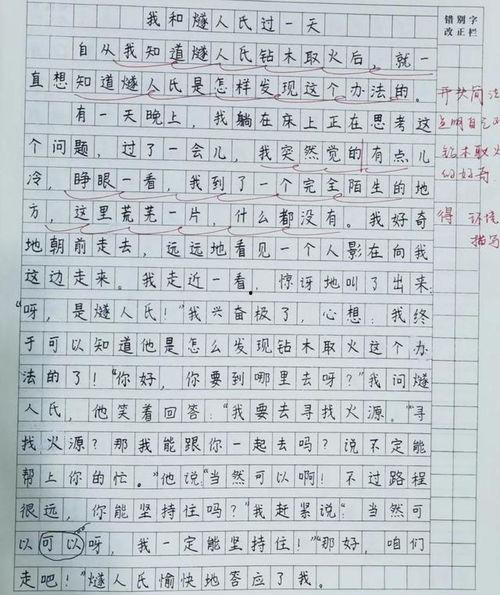 我和燧人氏过一天
错别字
改正栏
自从我知道燧人氏钻木取火后，就一
直想知道燧人氏是怎样发现这个办法的。
开头简洁
有一天晚上，我躺在床上正在思考这
点明自己对
个问题，过了一会儿，我突然觉的有点儿
钻木取火
冷，睁眼一看，我到了一个完全陌生的地
的好奇
方，这里荒芜一片，什么都没有。我好奇
得 环境
地朝前走去，远远地看见一个人影在向我
描写
这边走来。我走近一看，惊讶地叫了出来
“呀，是燧人氏！”我兴奋极了，心想：我终
于可以知道他是怎么发现钻木取火这个办
法的了！“你好，你要到哪里去呀？”我问燧
人氏，他笑着回答：“我要去寻找火源。”“寻
找火源？那我能跟你一起去吗？说不定能
帮上你的忙。”他说“当然可以啊！不过路程
很远，你能坚持住吗？”我赶紧说“当然可
以可以呀，我一定能坚持住！”“那好，咱们
走吧！”燧人氏愉快地答应了我。